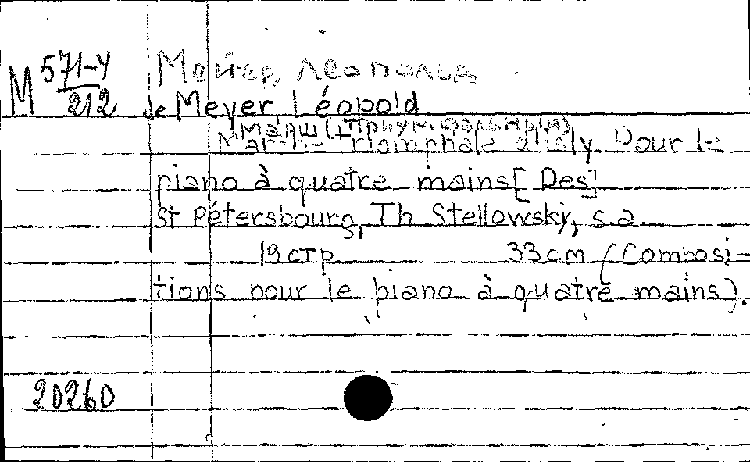 М 571-4/212 Мейер, Леопольд
de Meyer Léopold
Марш (триумфальный)
Marche triomphale d'Isly. Pour le
piano à quatre mains [Des]
St Pétersbourg, Th Stellowsky, s.a.
19 стр. 33 см (Composi-
tions pour le piano à quatre mains).
20260